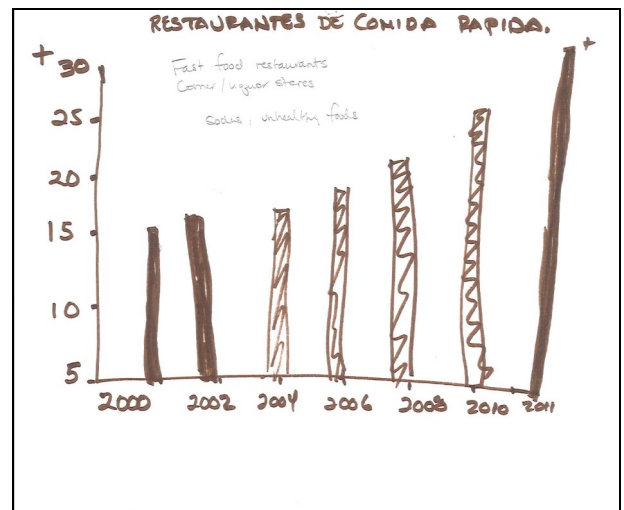 RESTAURANTES DE COMIDA RAPIDA.
+ 30
Fast food restaurants
Corner/liquor stores
sodas, unhealthy foods
25
20
15
10
5
2000 2002 2004 2006 2008 2010 2011
+